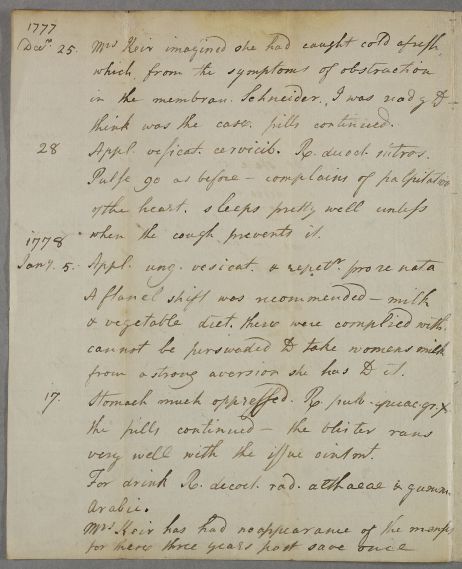 1777
Decr. 25. Mrs Keir imagined she had caught cold afresh
which from the symptoms of obstruction
in the membran. Schneider. I was ready to
think was the case. pills continued.
28 Appl. vesicat. cervicib. R. decoct. nitros.
Pulse 90 as before - complains of palpitation
of the heart. sleeps pretty well unless
when the cough prevents it.
1778
Jany. 5. Appl. ung. vesicat. & repetr. pro re nata
A flanel shift was recommended - milk
& vegetable diet. these were complied with.
cannot be perswaded to take womens milk
from a strong aversion she has to it.
17. Stomach much oppressed. R. pulv. ipecac. gr. X
the pills continued - the blister runs
very well with the issue ointmt.
For drink R. decoct. rad. althaeae & gumm.
arabic.
Mrs Keir has had no appearance of the menses
for these three years past save once